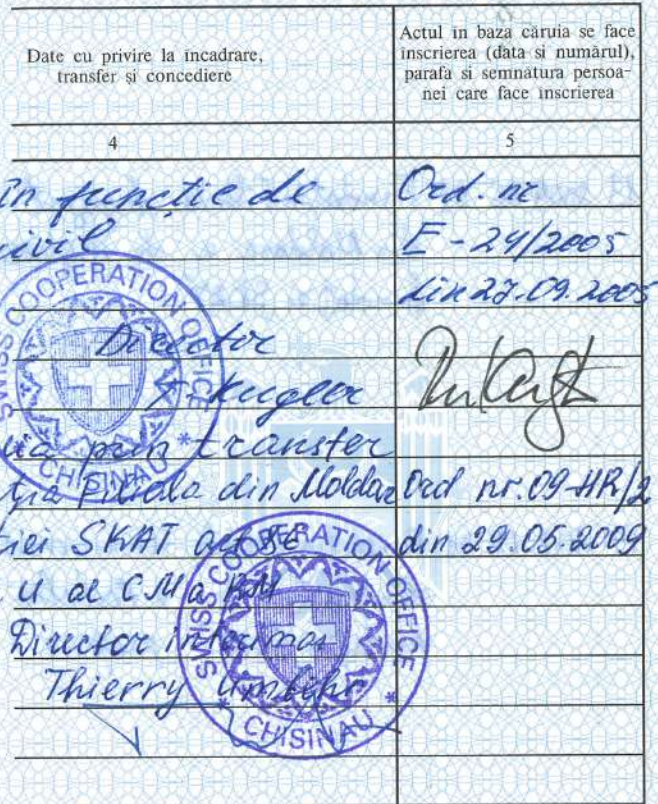 Date cu privire la incadrare,
transfer și concediere
Actul in baza căruia se face
inscrierea (data si numărul),
parafa si semnatura persoa-
nei care face inscrierea
4
5
în funcție de
Ord. nr
civil
E-24/2005
din 27.09.2005
Director
Kugler
prin transfer
Filiala din Moldova
Ord nr. 09-HR/2
SKAT
din 29.05.2009
al CM a RM
Director interimar
Thierry Umbehr
SWISS COOPERATION OFFICE
* CHISINAU *
SWISS COOPERATION OFFICE
* CHISINAU *